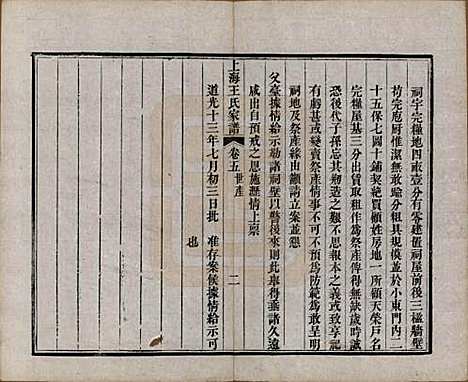 祠宇完糧地四畝壹分有零建置祠屋前後三楹牆壁
苟完庖厨惟潔無敢踰分粗具規模並於小東門內二
十五保七圖十鋪契絕買顧姓房地一所領天榮戶名
完糧屋基三分出賃取租作為祭產俾得無缺歲時誠
恐後代子孫忘其刱造之艱不思報本之義或致享祀
有虧甚或變賣祭產情事不可不預為防範為敢呈明
祠地及祭產緣由籲請立案並懇
父臺據情給示勒諸祠壁以警後來則此舉得垂諸久遠
咸出自預戒之恩施瀝情上稟
上海王氏家譜 卷五世產 二
道光十三年七月初三日批 准存案候據情給示可
也